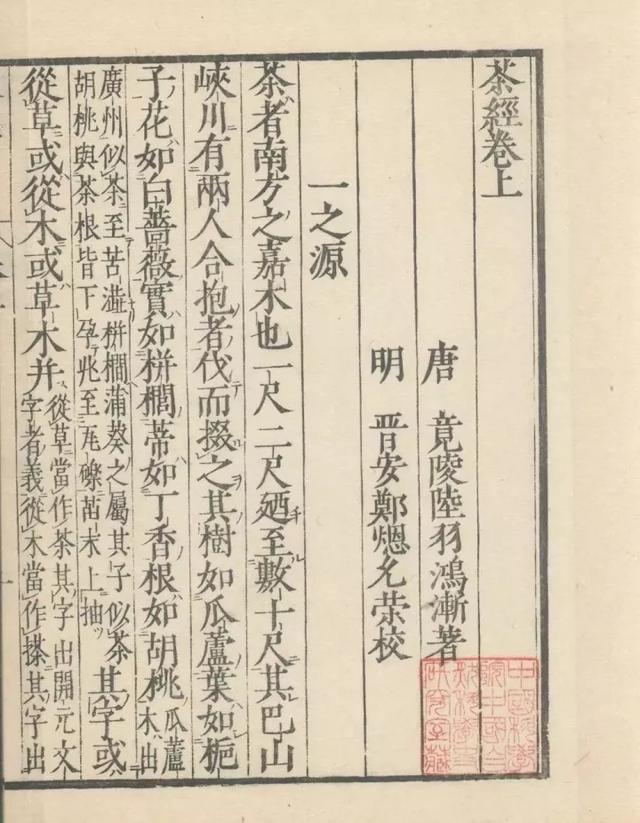 茶經卷上
唐 竟陵陸羽鴻漸著
明 晋安鄭熜允榮校
一之源
茶者南方之嘉木也一尺二尺廼至數十尺其巴山
峽川有兩人合抱者伐而掇之其樹如瓜蘆葉如梔
子花如白薔薇實如栟櫚蒂如丁香根如胡桃瓜蘆木出
廣州似茶至苦澁栟櫚蒲葵之屬其子似茶
胡桃與茶根皆下孕兆至瓦礫苗木上抽
其字或
從草或從木或草木并
從草當作茶其字出開元文
字者義從木當作搽其字出